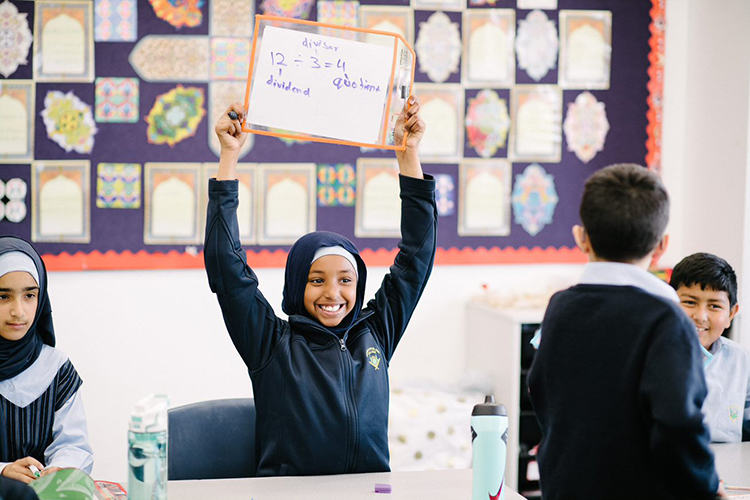 divisor
12 ÷ 3 = 4
dividend quotient